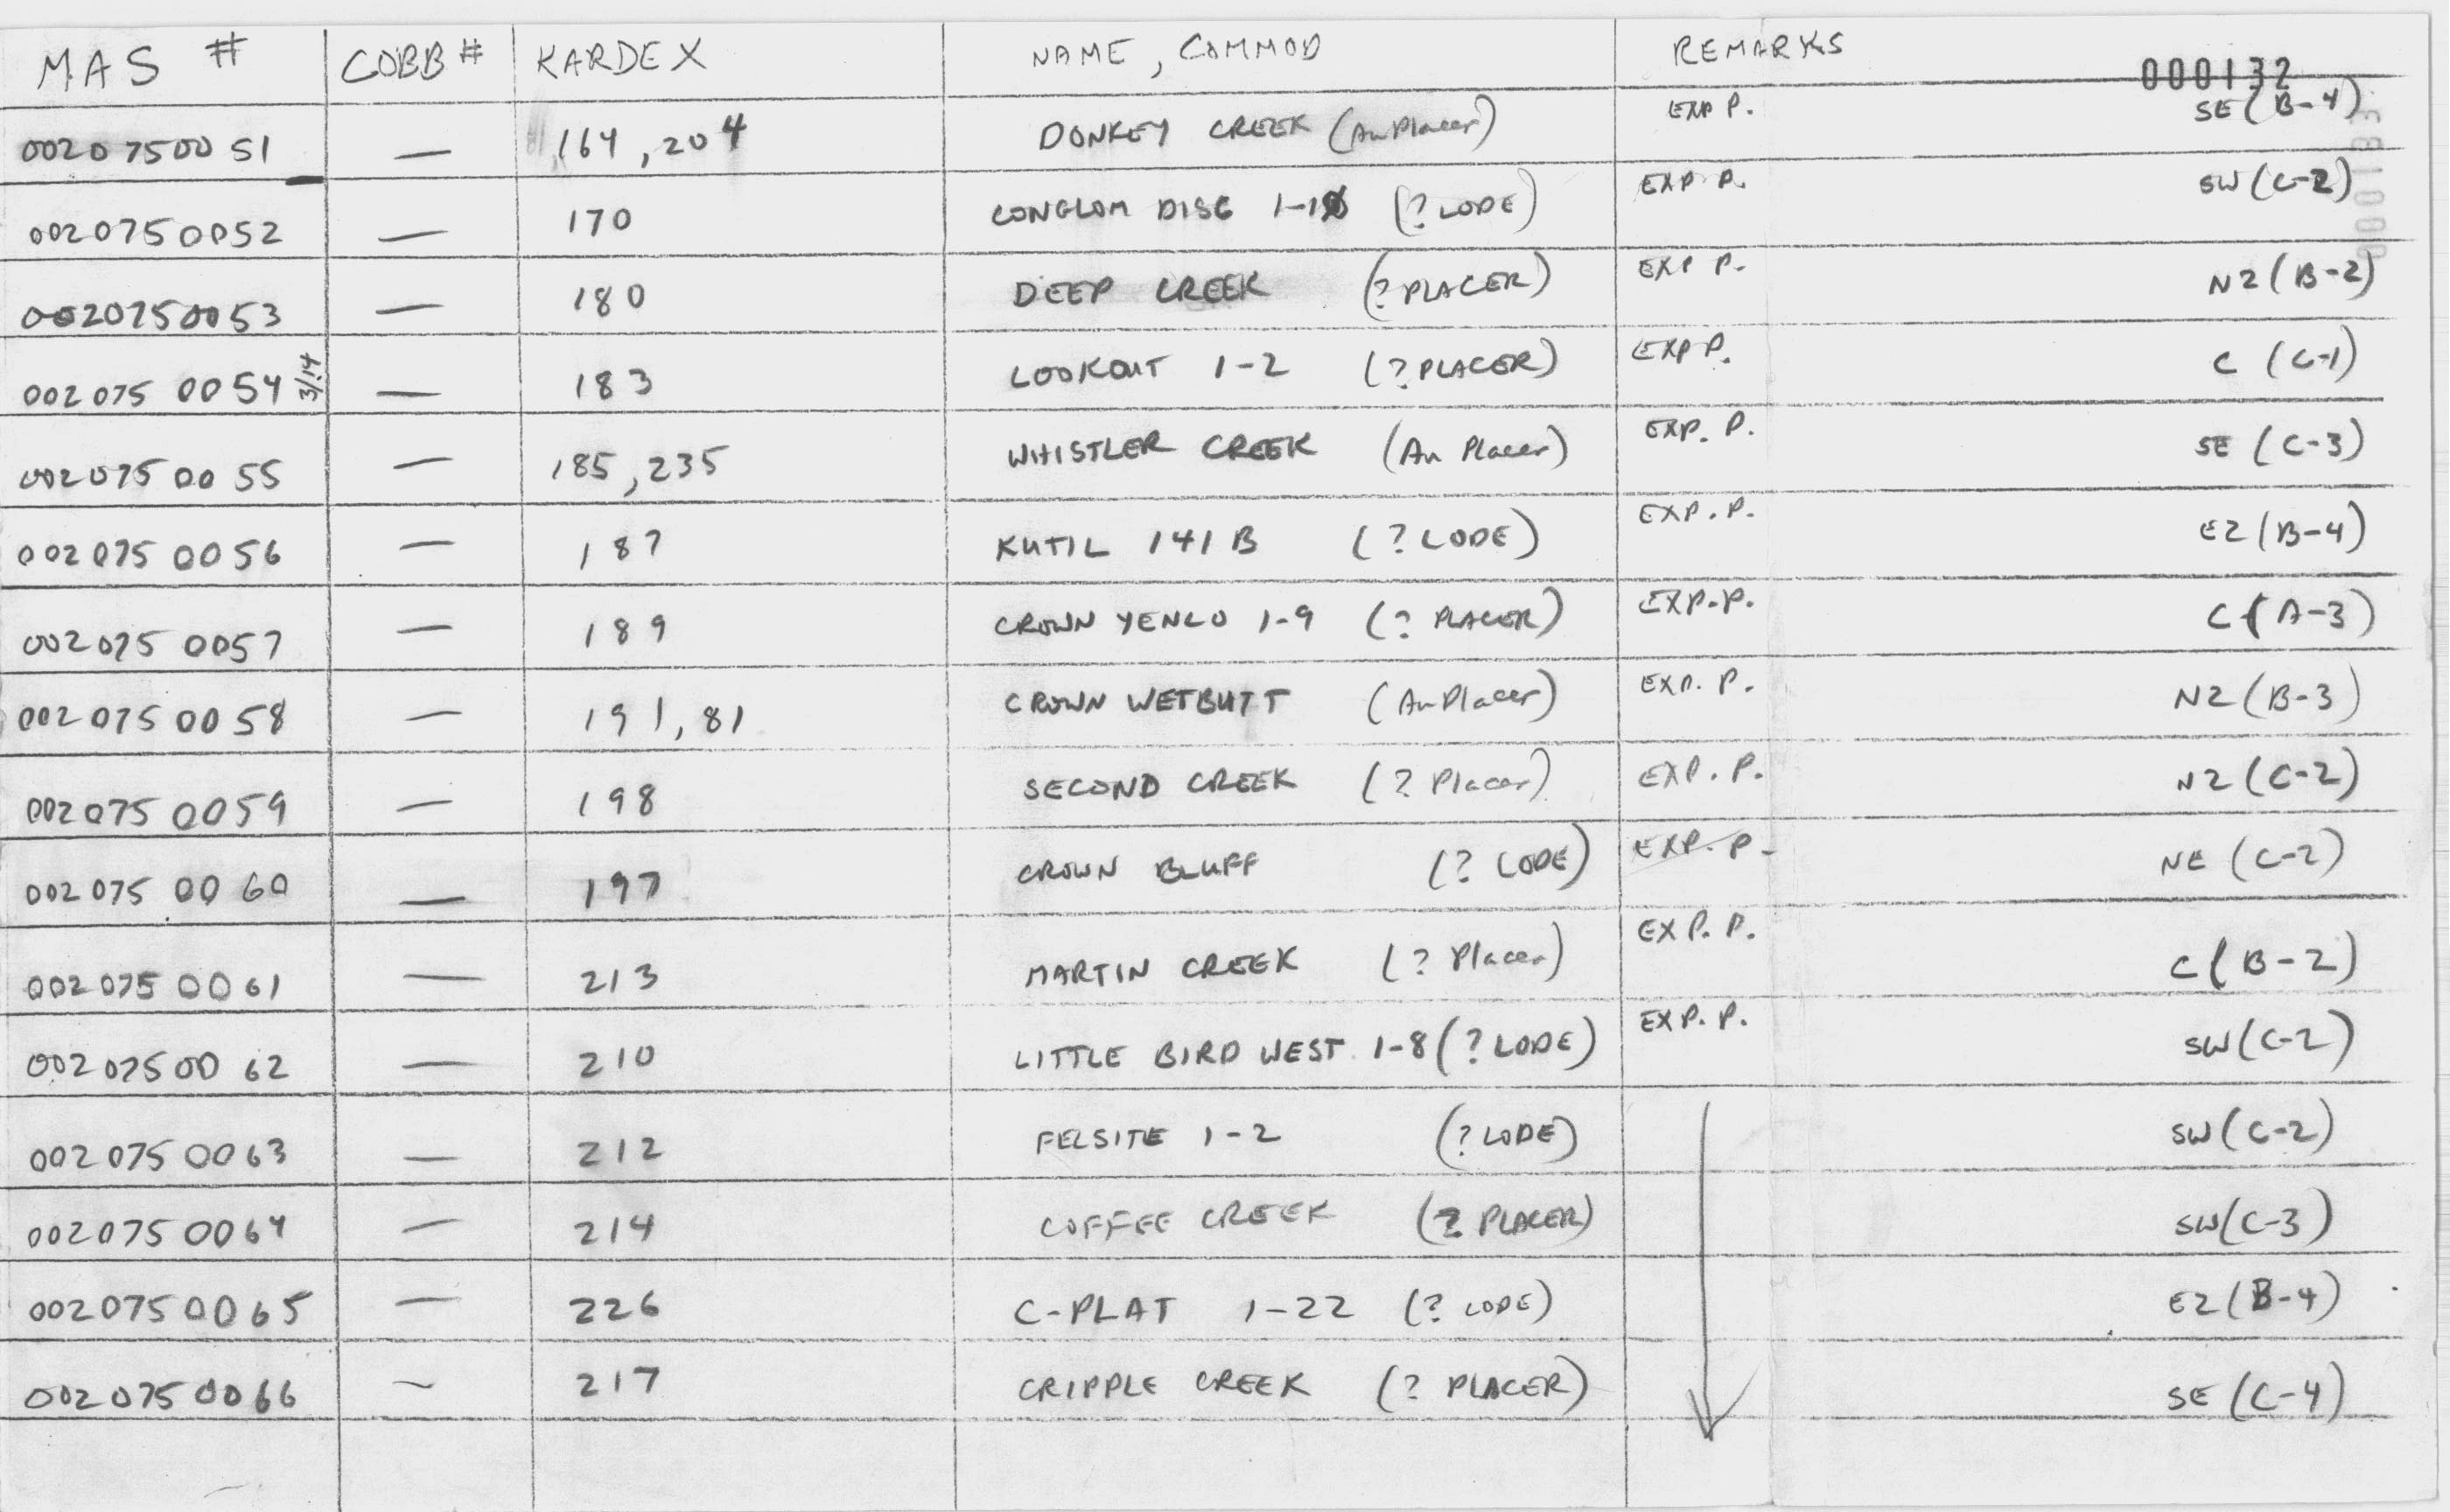 MAS # COBB # KARDEX NAME, COMMOD REMARKS
000132
0020750051 — 164, 204 DONKEY CREEK (Au Placer) EXP P. SE (B-4)
0020750052 — 170 CONGLOM DISC (? LODE) EXP P. SW (C-2)
0020750053 — 180 DEEP CREEK (? PLACER) EXP P. N2 (B-2)
0020750054 3/14 — 183 LOOKOUT 1-2 (? PLACER) EXP P. C (C-1)
0020750055 — 185, 235 WHISTLER CREEK (Au Placer) EXP. P. SE (C-3)
0020750056 — 187 KUTIL 141B (? LODE) EXP. P. E2 (B-4)
0020750057 — 189 CROWN YENLO 1-9 (? PLACER) EXP. P. C (A-3)
0020750058 — 191, 81 CROWN WETBUTT (Au Placer) EXP. P. N2 (B-3)
0020750059 — 198 SECOND CREEK (? Placer) EXP. P. N2 (C-2)
0020750060 — 197 CROWN BLUFF (? LODE) EXP. P. NE (C-2)
0020750061 — 213 MARTIN CREEK (? Placer) EXP. P. C (B-2)
0020750062 — 210 LITTLE BIRD WEST 1-8 (? LODE) EXP. P. SW (C-2)
0020750063 — 212 FELSITE 1-2 (? LODE) SW (C-2)
0020750064 — 214 COFFEE CREEK (? PLACER) SW (C-3)
0020750065 — 226 C-PLAT 1-22 (? LODE) E2 (B-4)
0020750066 — 217 CRIPPLE CREEK (? PLACER) SE (C-4)